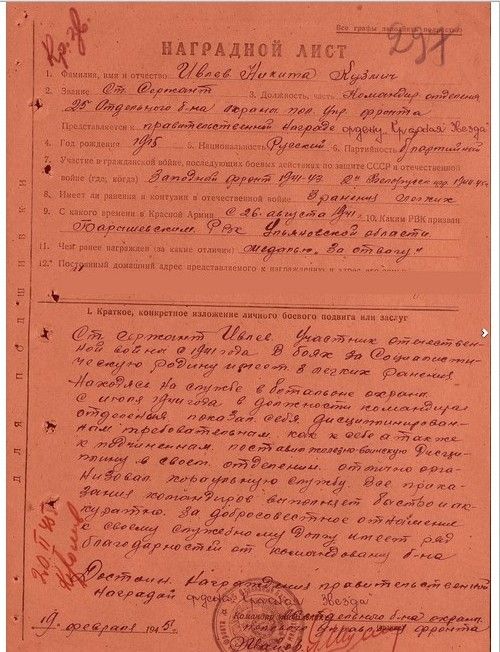 Все графы заполнять полностью
Кр. Зв.
297
НАГРАДНОЙ ЛИСТ
1. Фамилия, имя и отчество Ивлев Никита Кузмич
2. Звание Ст. Сержант 3. Должность, часть Командир отделения
25 Отдельного б-на охраны пол. упр. фронта
Представляется к правительственной награде ордену „Красная Звезда"
4. Год рождения 1915 5. Национальность Русский 6. Партийность б/партийный
7. Участие в гражданской войне, последующих боевых действиях по защите СССР и отечественной
войне (где, когда) Западной фронт 1941-43 2й Белорусск
8. Имеет ли ранения и контузии в отечественной войне 3 ранения легких
9. С какого времени в Красной Армии С 26. августа 1941 10. Каким РВК призван
Барышевским РВК Ульяновской области.
11. Чем ранее награжден (за какие отличия) медалью „За отвагу"
12. Постоянный домашний адрес представляемого к награждению и адрес его
для подшивки
I. Краткое, конкретное изложение личного боевого подвига или заслуг
Ст. сержант Ивлев. Участник отечествен-
ной войны с 1941 года. В боях за Социалисти-
ческую родину имеет 3 легких ранения
Находясь на службе в батальоне охраны
с июля 1944 года в должности командира
отделения показал себя дисциплинирован-
ным требовательным, как к себе а также
к подчиненным. поставил железно-воинскую Дисци-
плину в своем отделении. отлично орга-
низовал караульную службу. Все прика-
зания командиров выполняет быстро и ак-
куратно. За добросовестное отношение
к своему служебному долгу имеет ряд
благодарностей от командования б-на
Достоин. Награждения правительственной
наградой ордена „Красная Звезда"
Командир отдельного б-на охраны
управления фронта
19. февраля 1945.